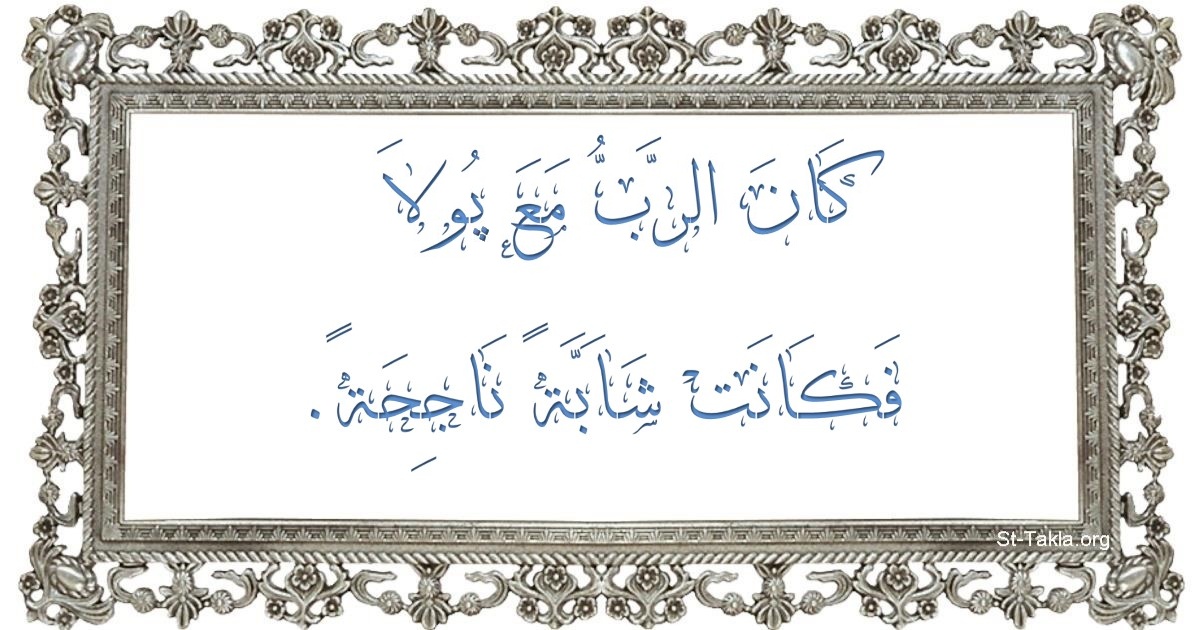 كَانَ الرَّبُّ مَعَ پُولاَ
فَكَانَت شَابَّةً نَاجِحَةً.
St-Takla.org